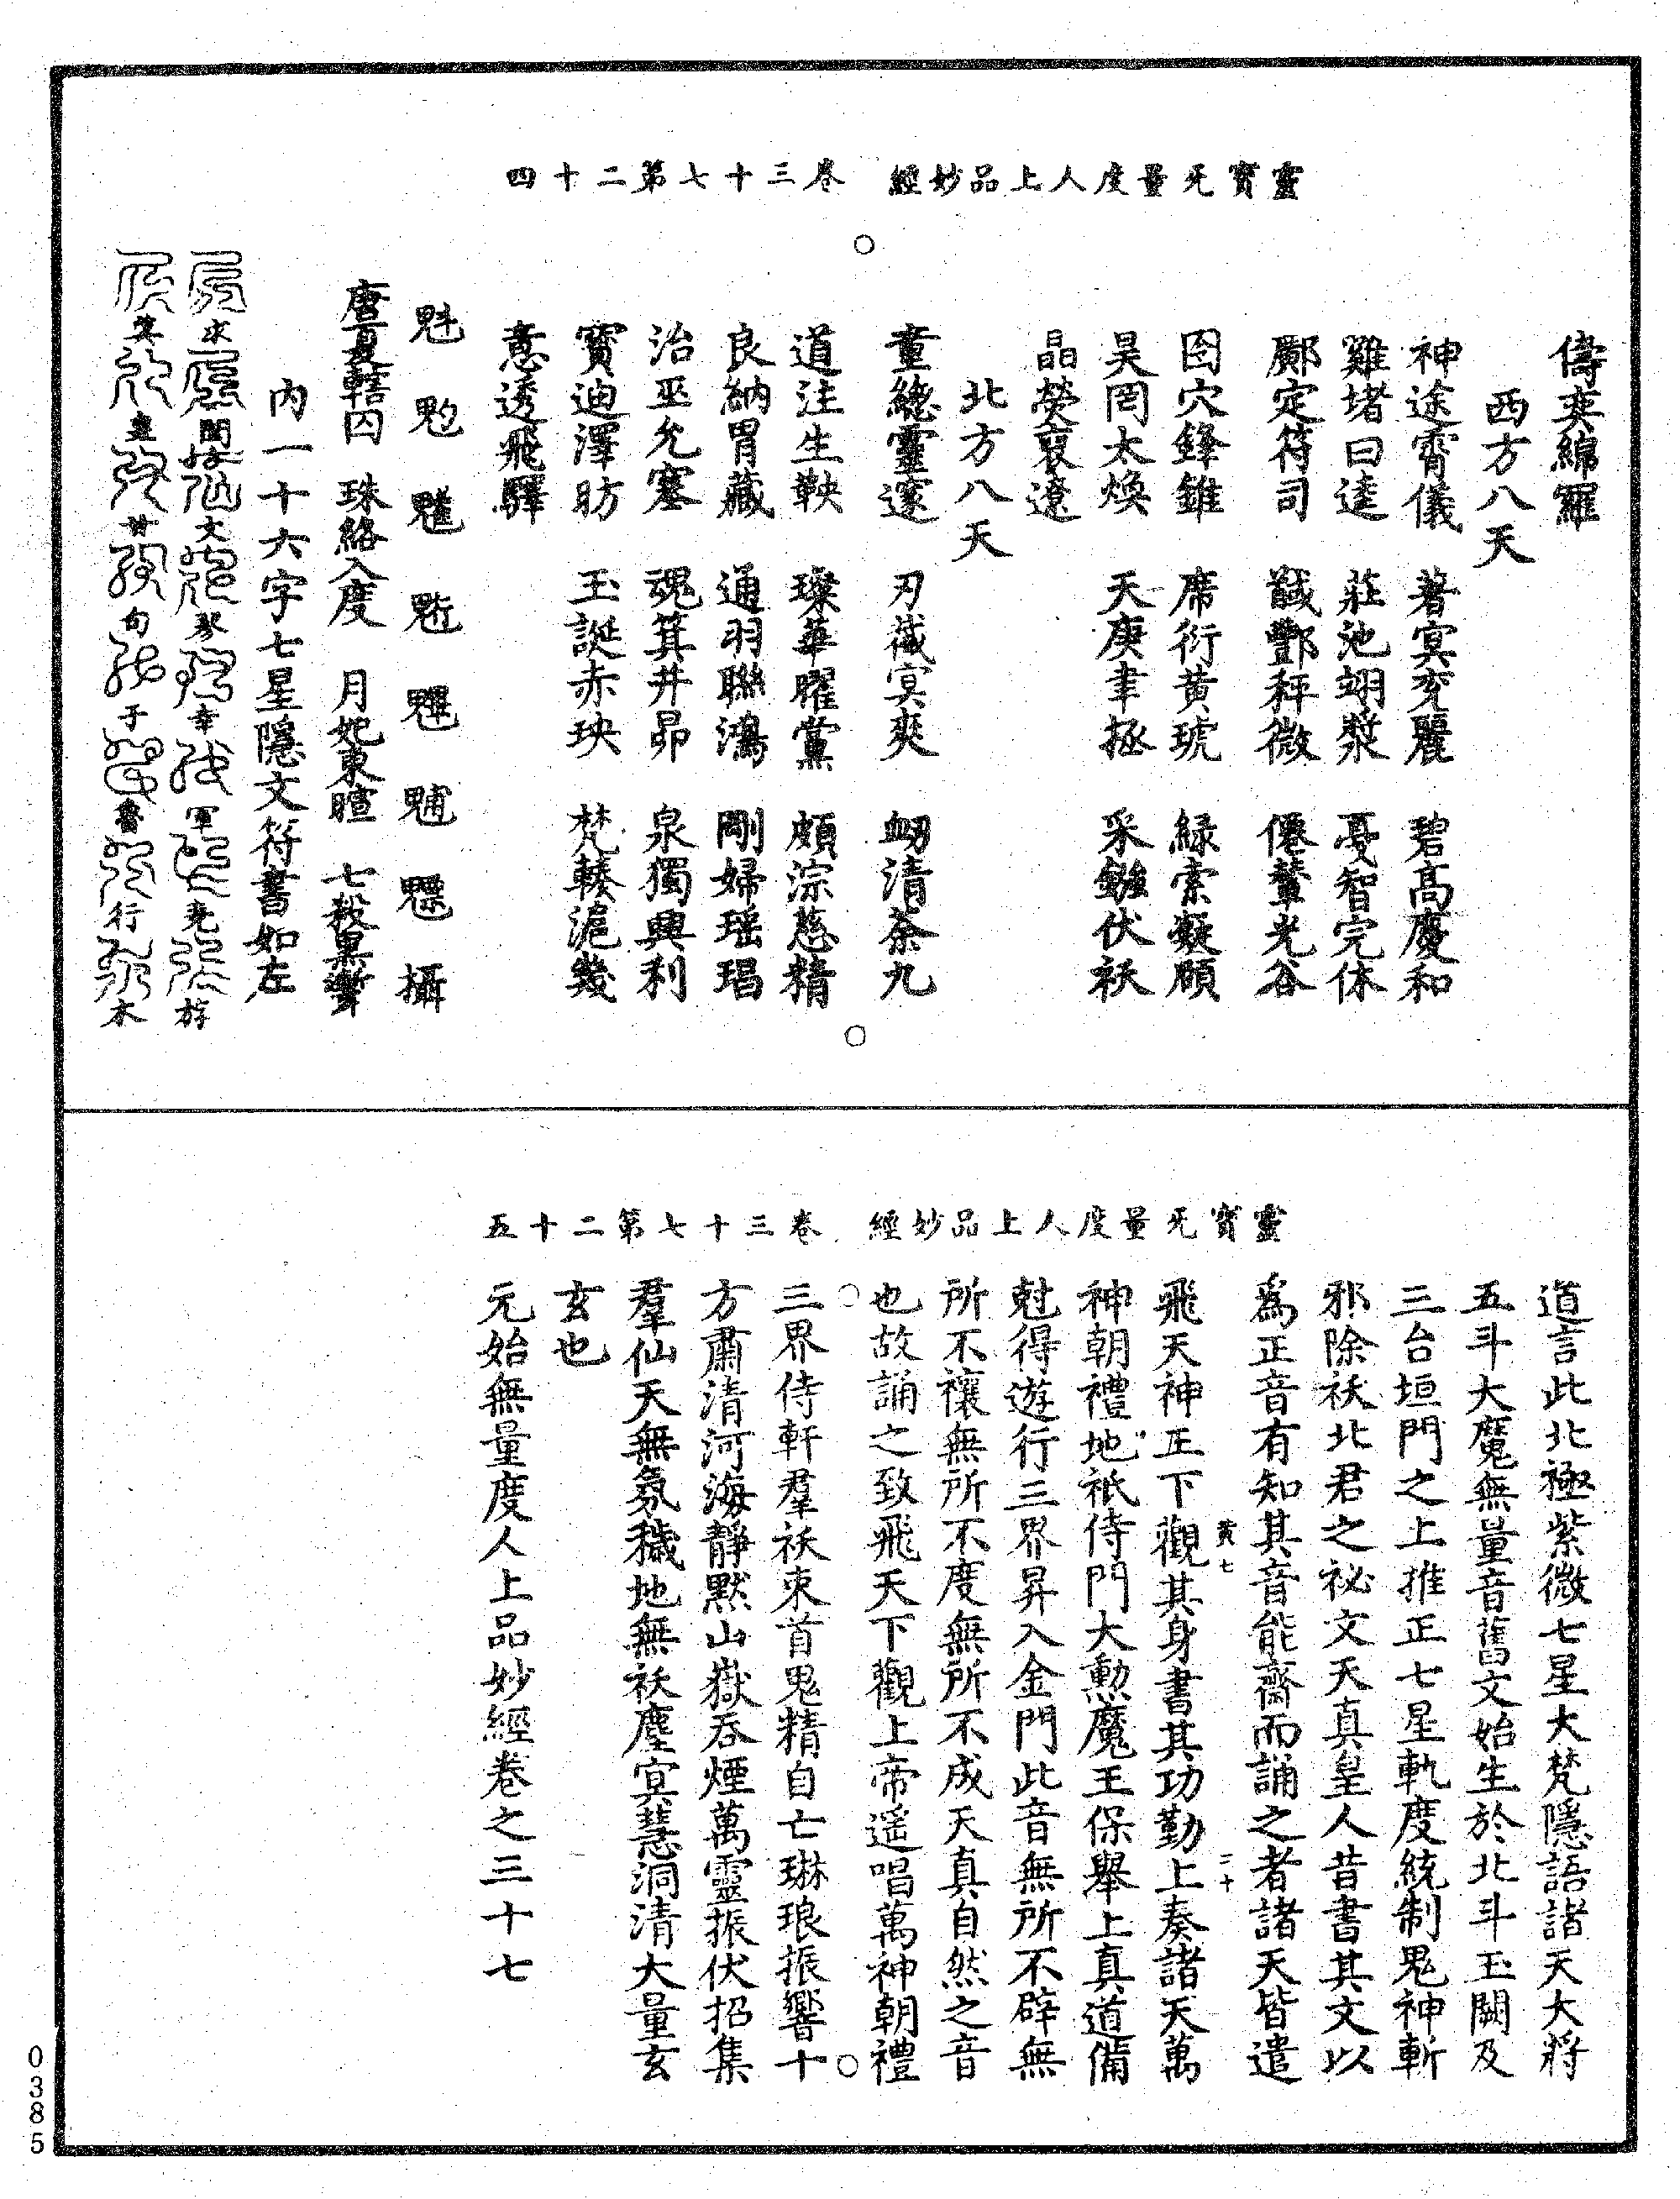 靈寶无量度人上品妙經　卷三十七第二十四
儔奕綿羅
西方八天
神途霄儀　著寞兖麗　碧高慶和
雞堵曰逵　莊池翊漿　憂智完休
鄺定符司　酆秤微　僊輦光谷
囹穴鋒錐　席衍黃琥　緑索凝頋
昊罔太煥　天庚聿拯　采鎡伏祅
晶熒裒遼
北方八天
童總靈邃　刃蕆寞爽　衂清荼九
道注生鞅　璨華曜黨　頗淙慈精
良納胃藏　通羽聯鴻　剛婦瑶琩
治巫允塞　魂箕井昴　泉獨興利
寶迪澤昉　玉誕赤玦　梵轃滬幾
意透飛驛
魁　魀　魋　攝
唐夏轄囚　珠絡入度　月妃東暄　七
内一十六字七星隱文符書如左
求　閏　文　琴　幸　軍　堯　游
箕　皇　甘　句　于　魯　行　木
靈寶无量度人上品妙經　卷三十七第二十五
道言此北極紫微七星大梵隱語諸天大將
五斗大魔無量音舊文始生於北斗玉闕及
三台垣門之上推正七星軌度統制鬼神斬
邪除祅北君之祕文天真皇人昔書其文以
爲正音有知其音能齋而誦之者諸天皆遣
黃七　二十
飛天神王下觀其身書其功勤上奏諸天萬
神朝禮地祇侍門大勳魔王保舉上真道備
尅得遊行三界昇入金門此音無所不辟無
所不禳無所不度無所不成天真自然之音
也故誦之致飛天下觀上帝遥唱萬神朝禮
三界侍軒羣祅束首鬼精自亡琳琅振響十
方肅清河海靜默山嶽吞煙萬靈振伏招集
羣仙天無氛穢地無祅塵寞慧洞清大量玄
玄也
元始無量度人上品妙經卷之三十七
0385